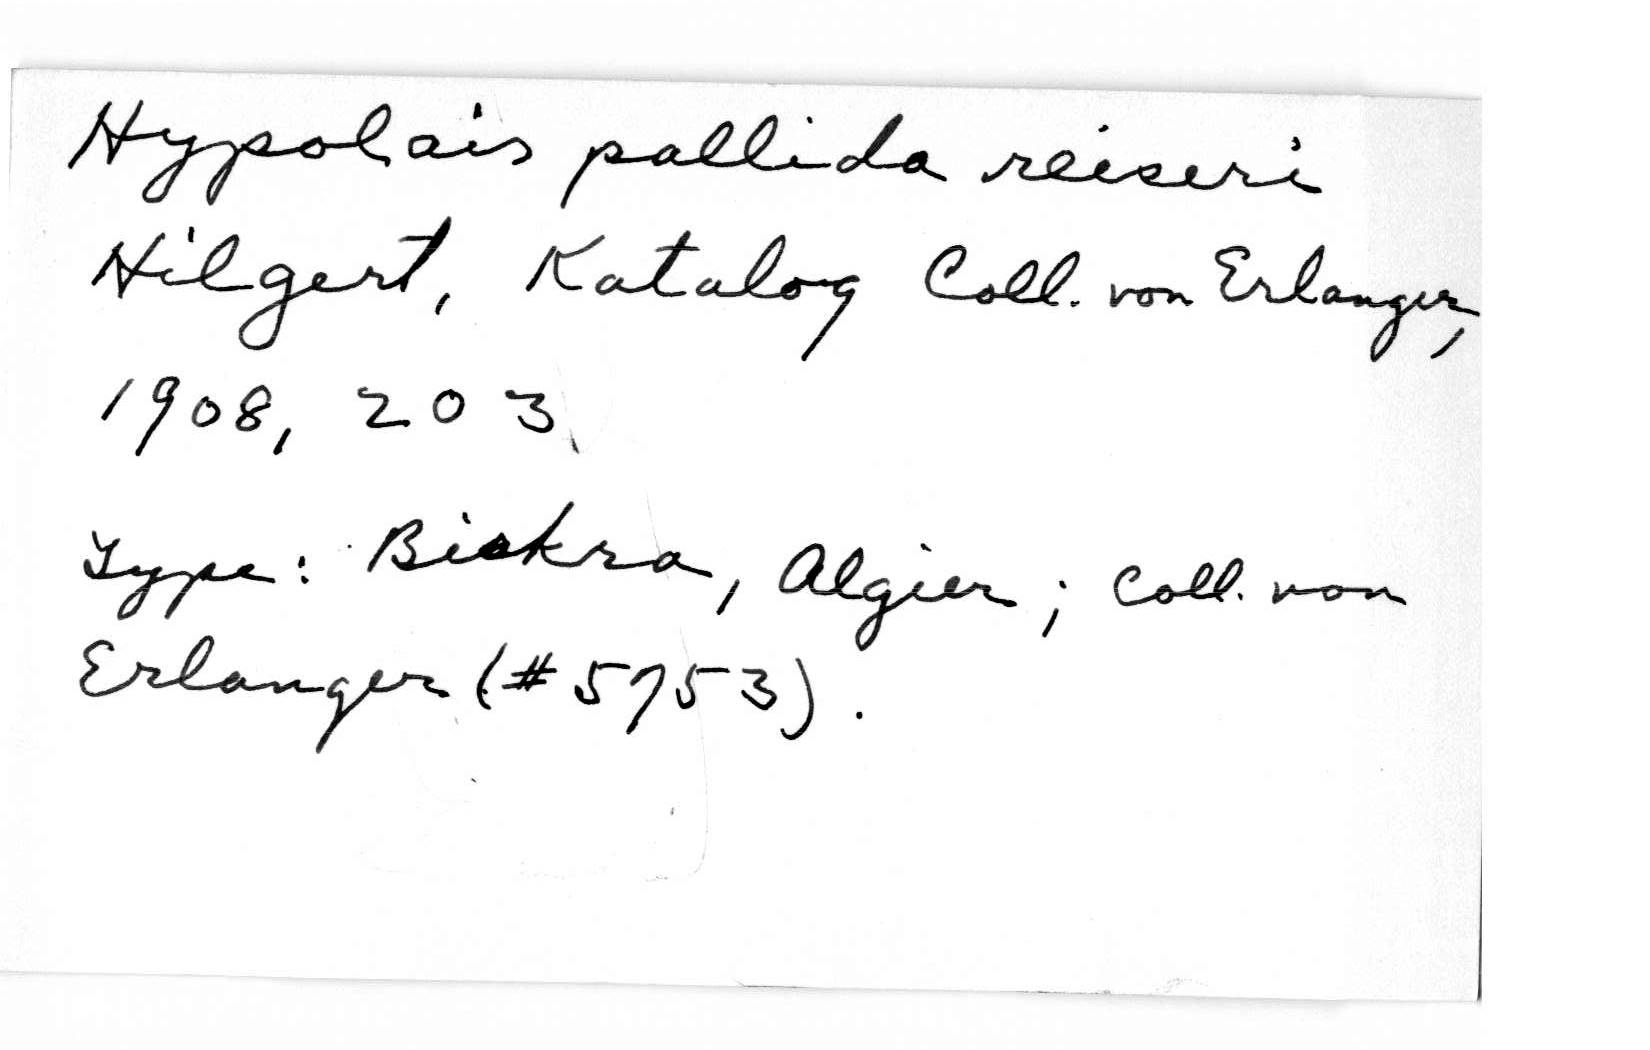 Hypolais pallida reiseri
Hilgert, Katalog Coll. von Erlanger,
1908, 203
Type: Biskra, Algier; Coll. von
Erlanger (#5753).